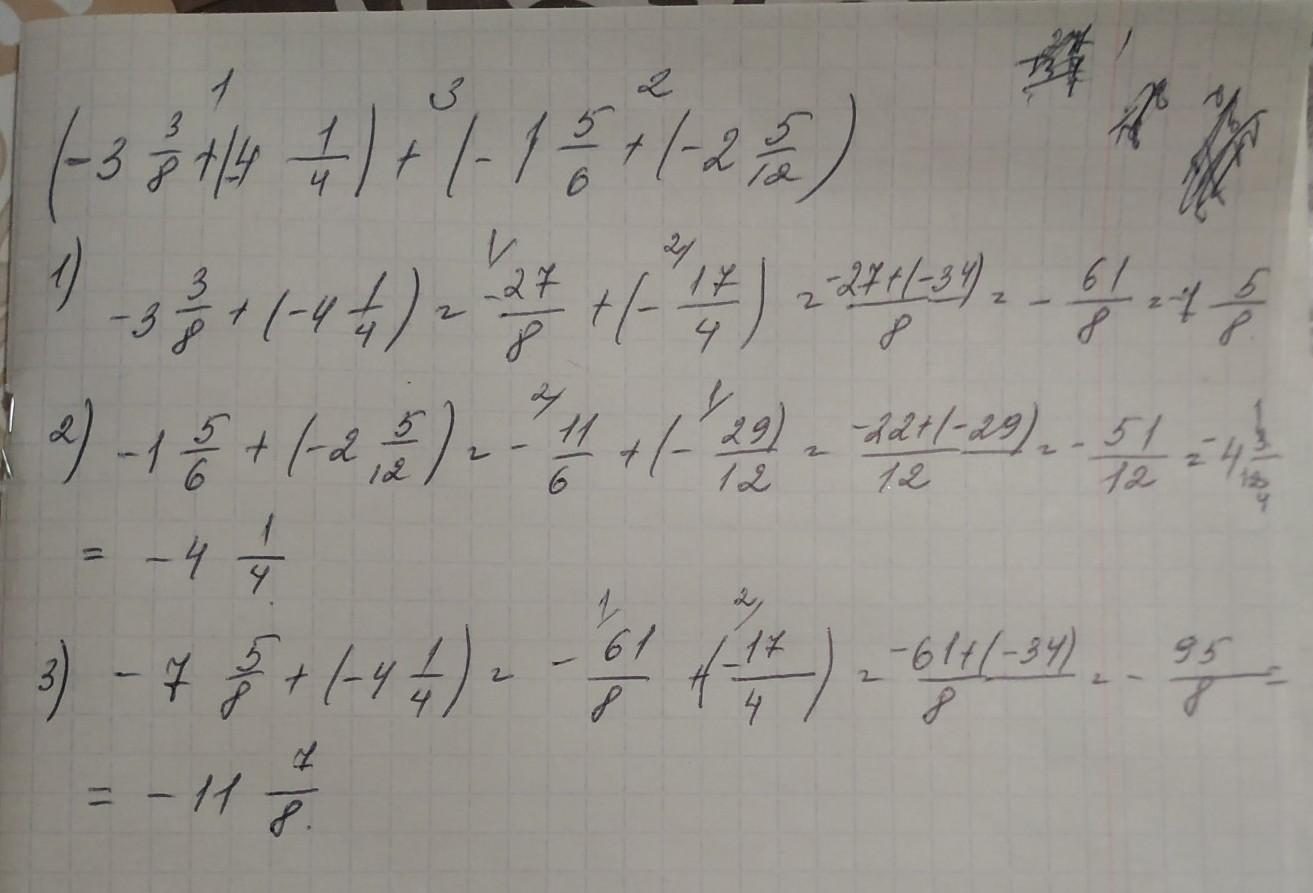 1 3 2
(-3 3/8 + (-4 1/4) + (-1 5/6 + (-2 5/12)
1) -3 3/8 + (-4 1/4) = -27/8 + (-17/4) = -27+(-34)/8 = -61/8 = -7 5/8
2) -1 5/6 + (-2 5/12) = -11/6 + (-29/12) = -22+(-29)/12 = -51/12 = -4 3/12
= -4 1/4
3) -7 5/8 + (-4 1/4) = -61/8 + (-17/4) = -61+(-34)/8 = -95/8 =
= -11 7/8.